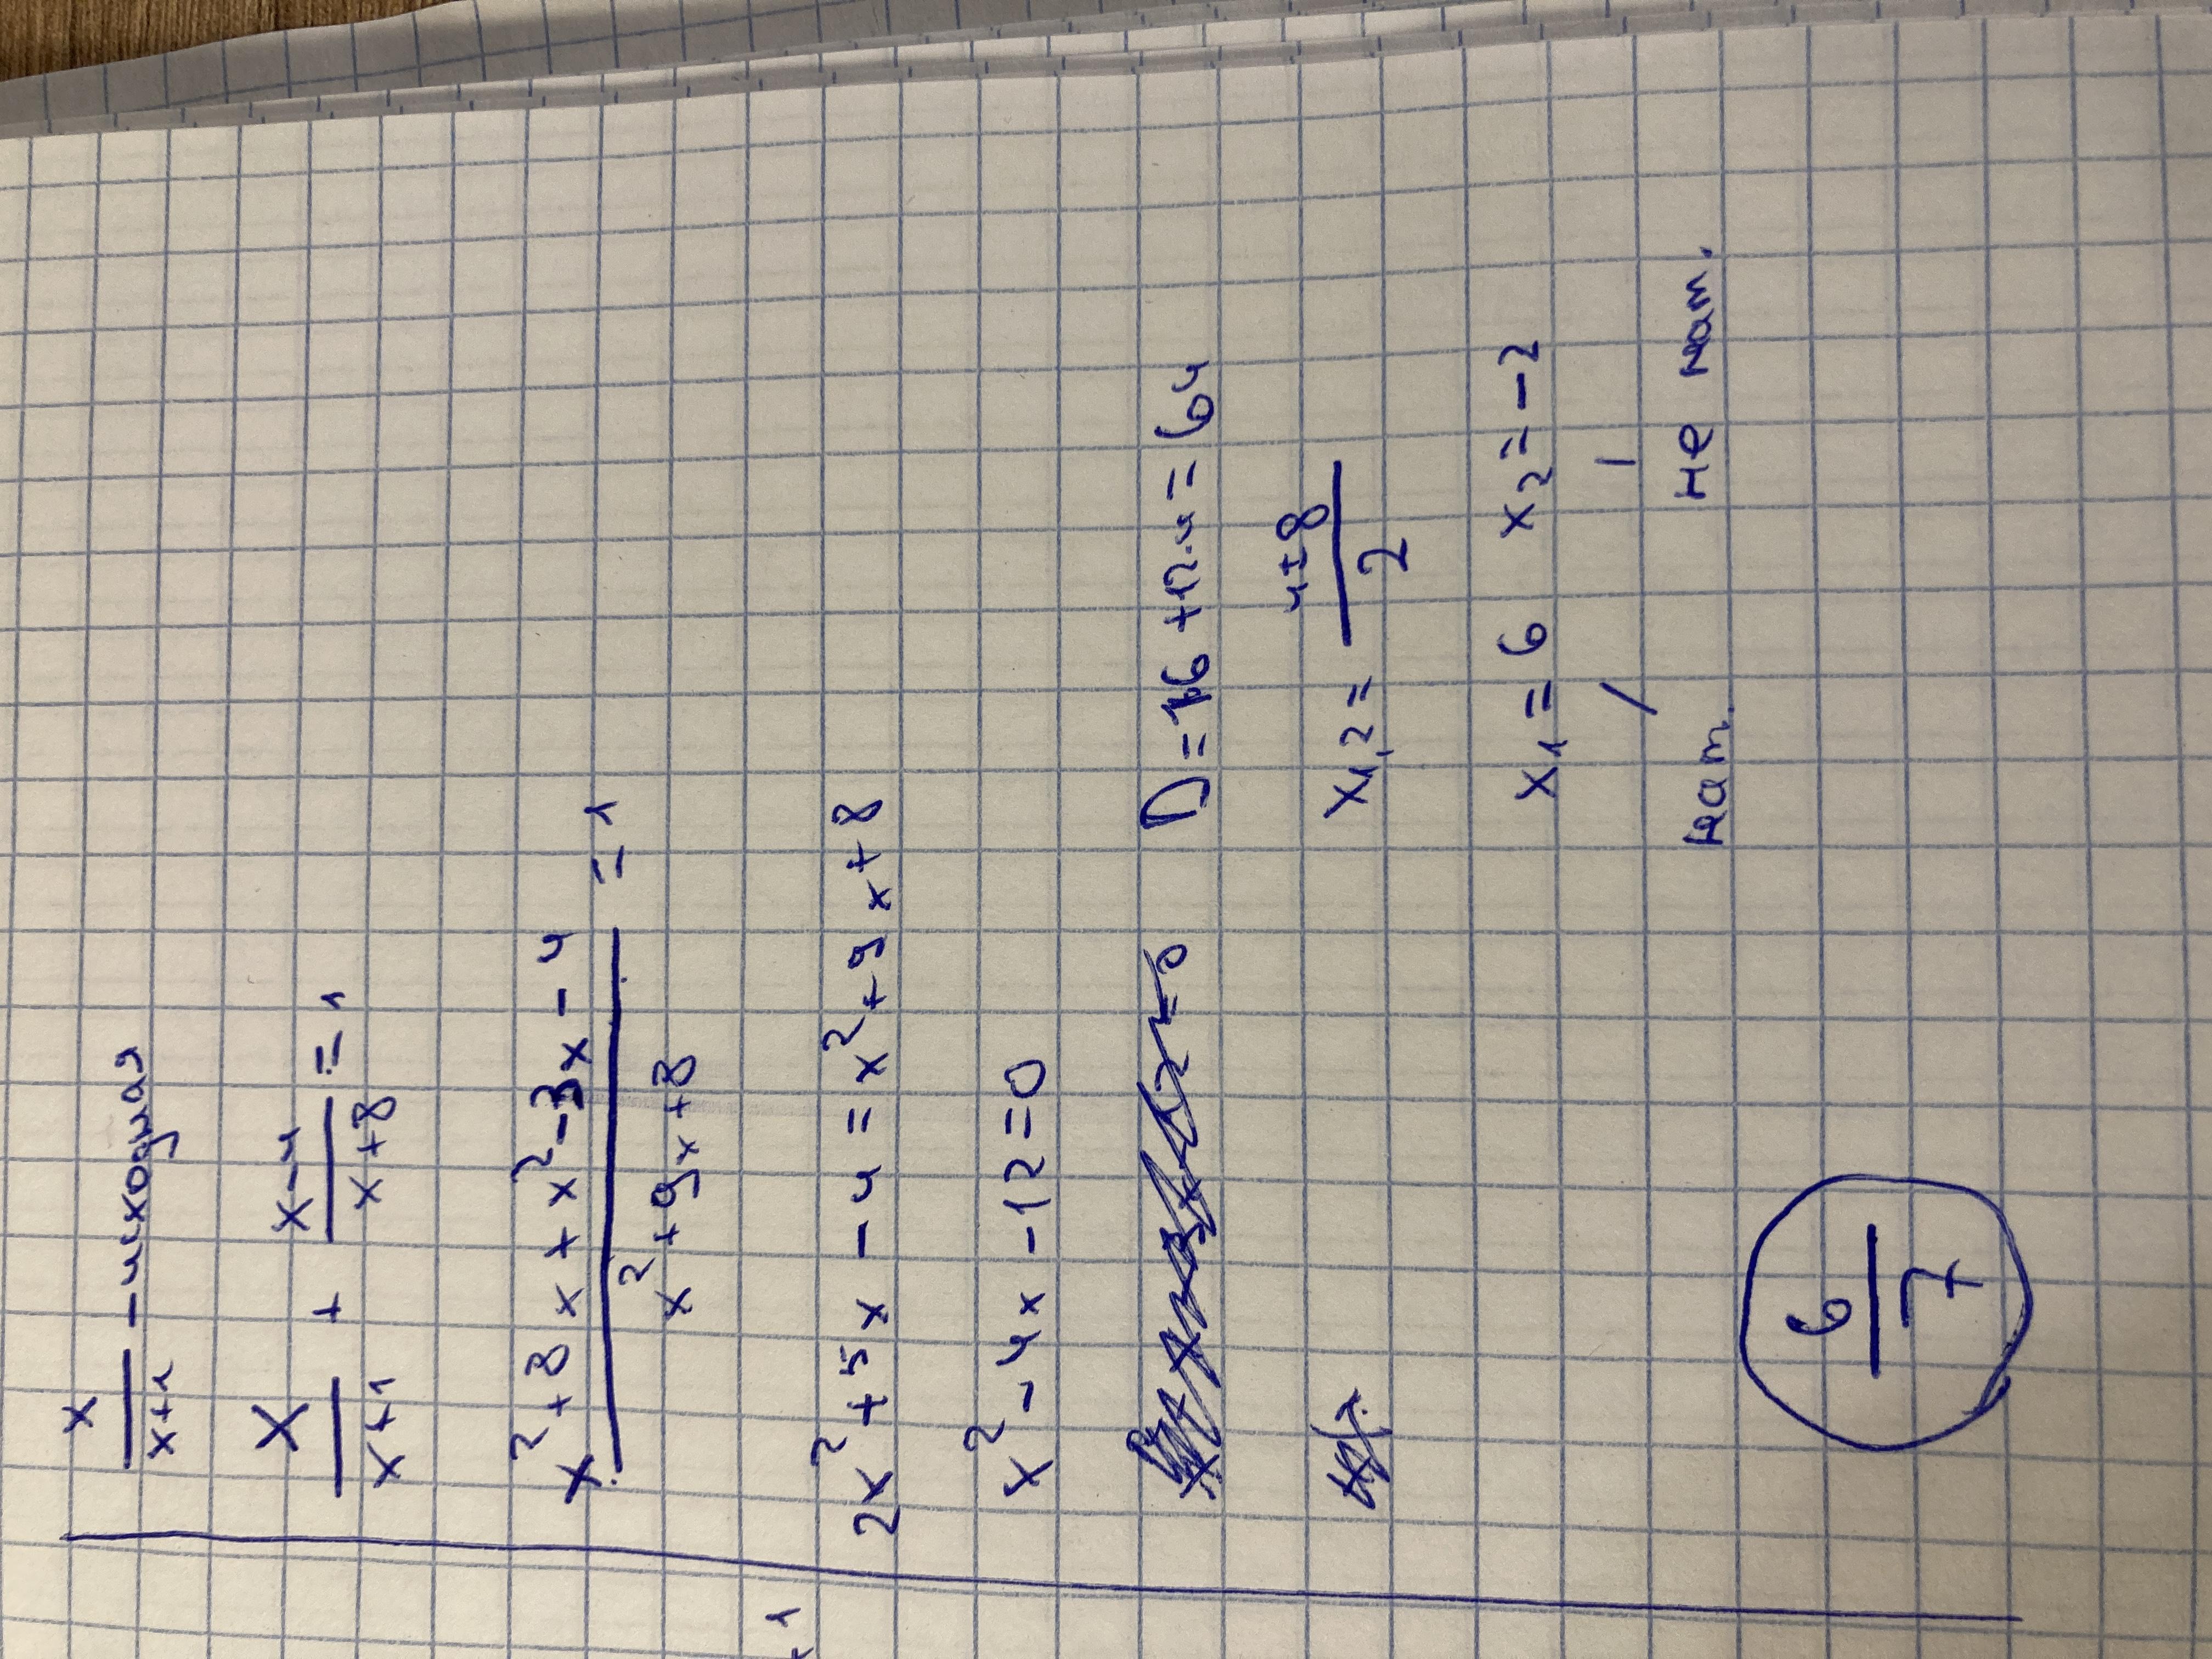 x/(x+1) - исходная
x/(x+1) + (x-4)/(x+8) = 1
(x²+8x+x²-3x-4)/(x²+9x+8) = 1
2x²+5x-4=x²+9x+8
x²-4x-12=0
D=16+12·4=64
x₁,₂=(4±8)/2
x₁=6 x₂=-2
нат. не нат.
6/7